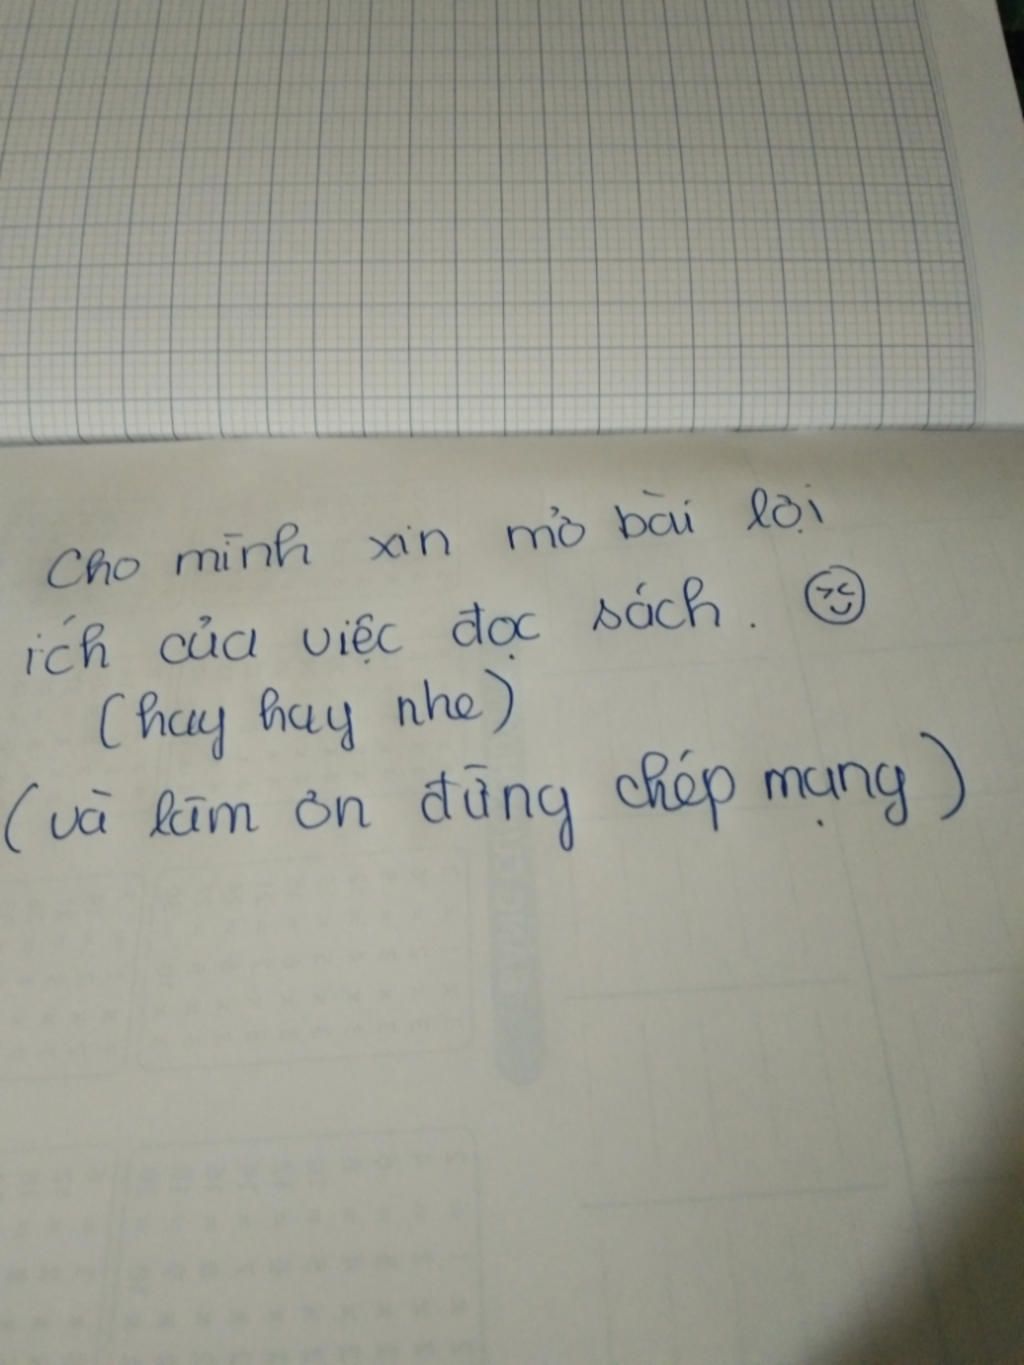 Cho mình xin mở bài lợi
ích của việc đọc sách.
(hay hay nhe)
(và làm ơn đừng chép mạng)